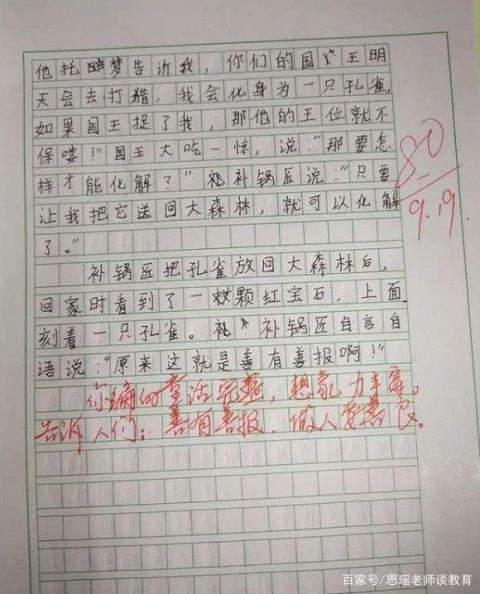 他托梦告诉我，你们的国王明
天会去打猎，我会化身为一只孔雀，
如果国王捉了我，那他的王位就不
保喽！”国王大吃一惊，说：“那要怎
样才能化解了？”补锅匠说：“只要
让我把它送回大森林，就可以化解
了。”
补锅匠把孔雀放回大森林后，
回家时看到了一颗红宝石，上面
刻着一只孔雀。补锅匠自言自
语说：“原来这就是善有善报啊！”
你编的童话完整，想象力丰富。
告诉人们：善有善报，做人要善良。
80
9.19.
百家号/思瑶老师谈教育